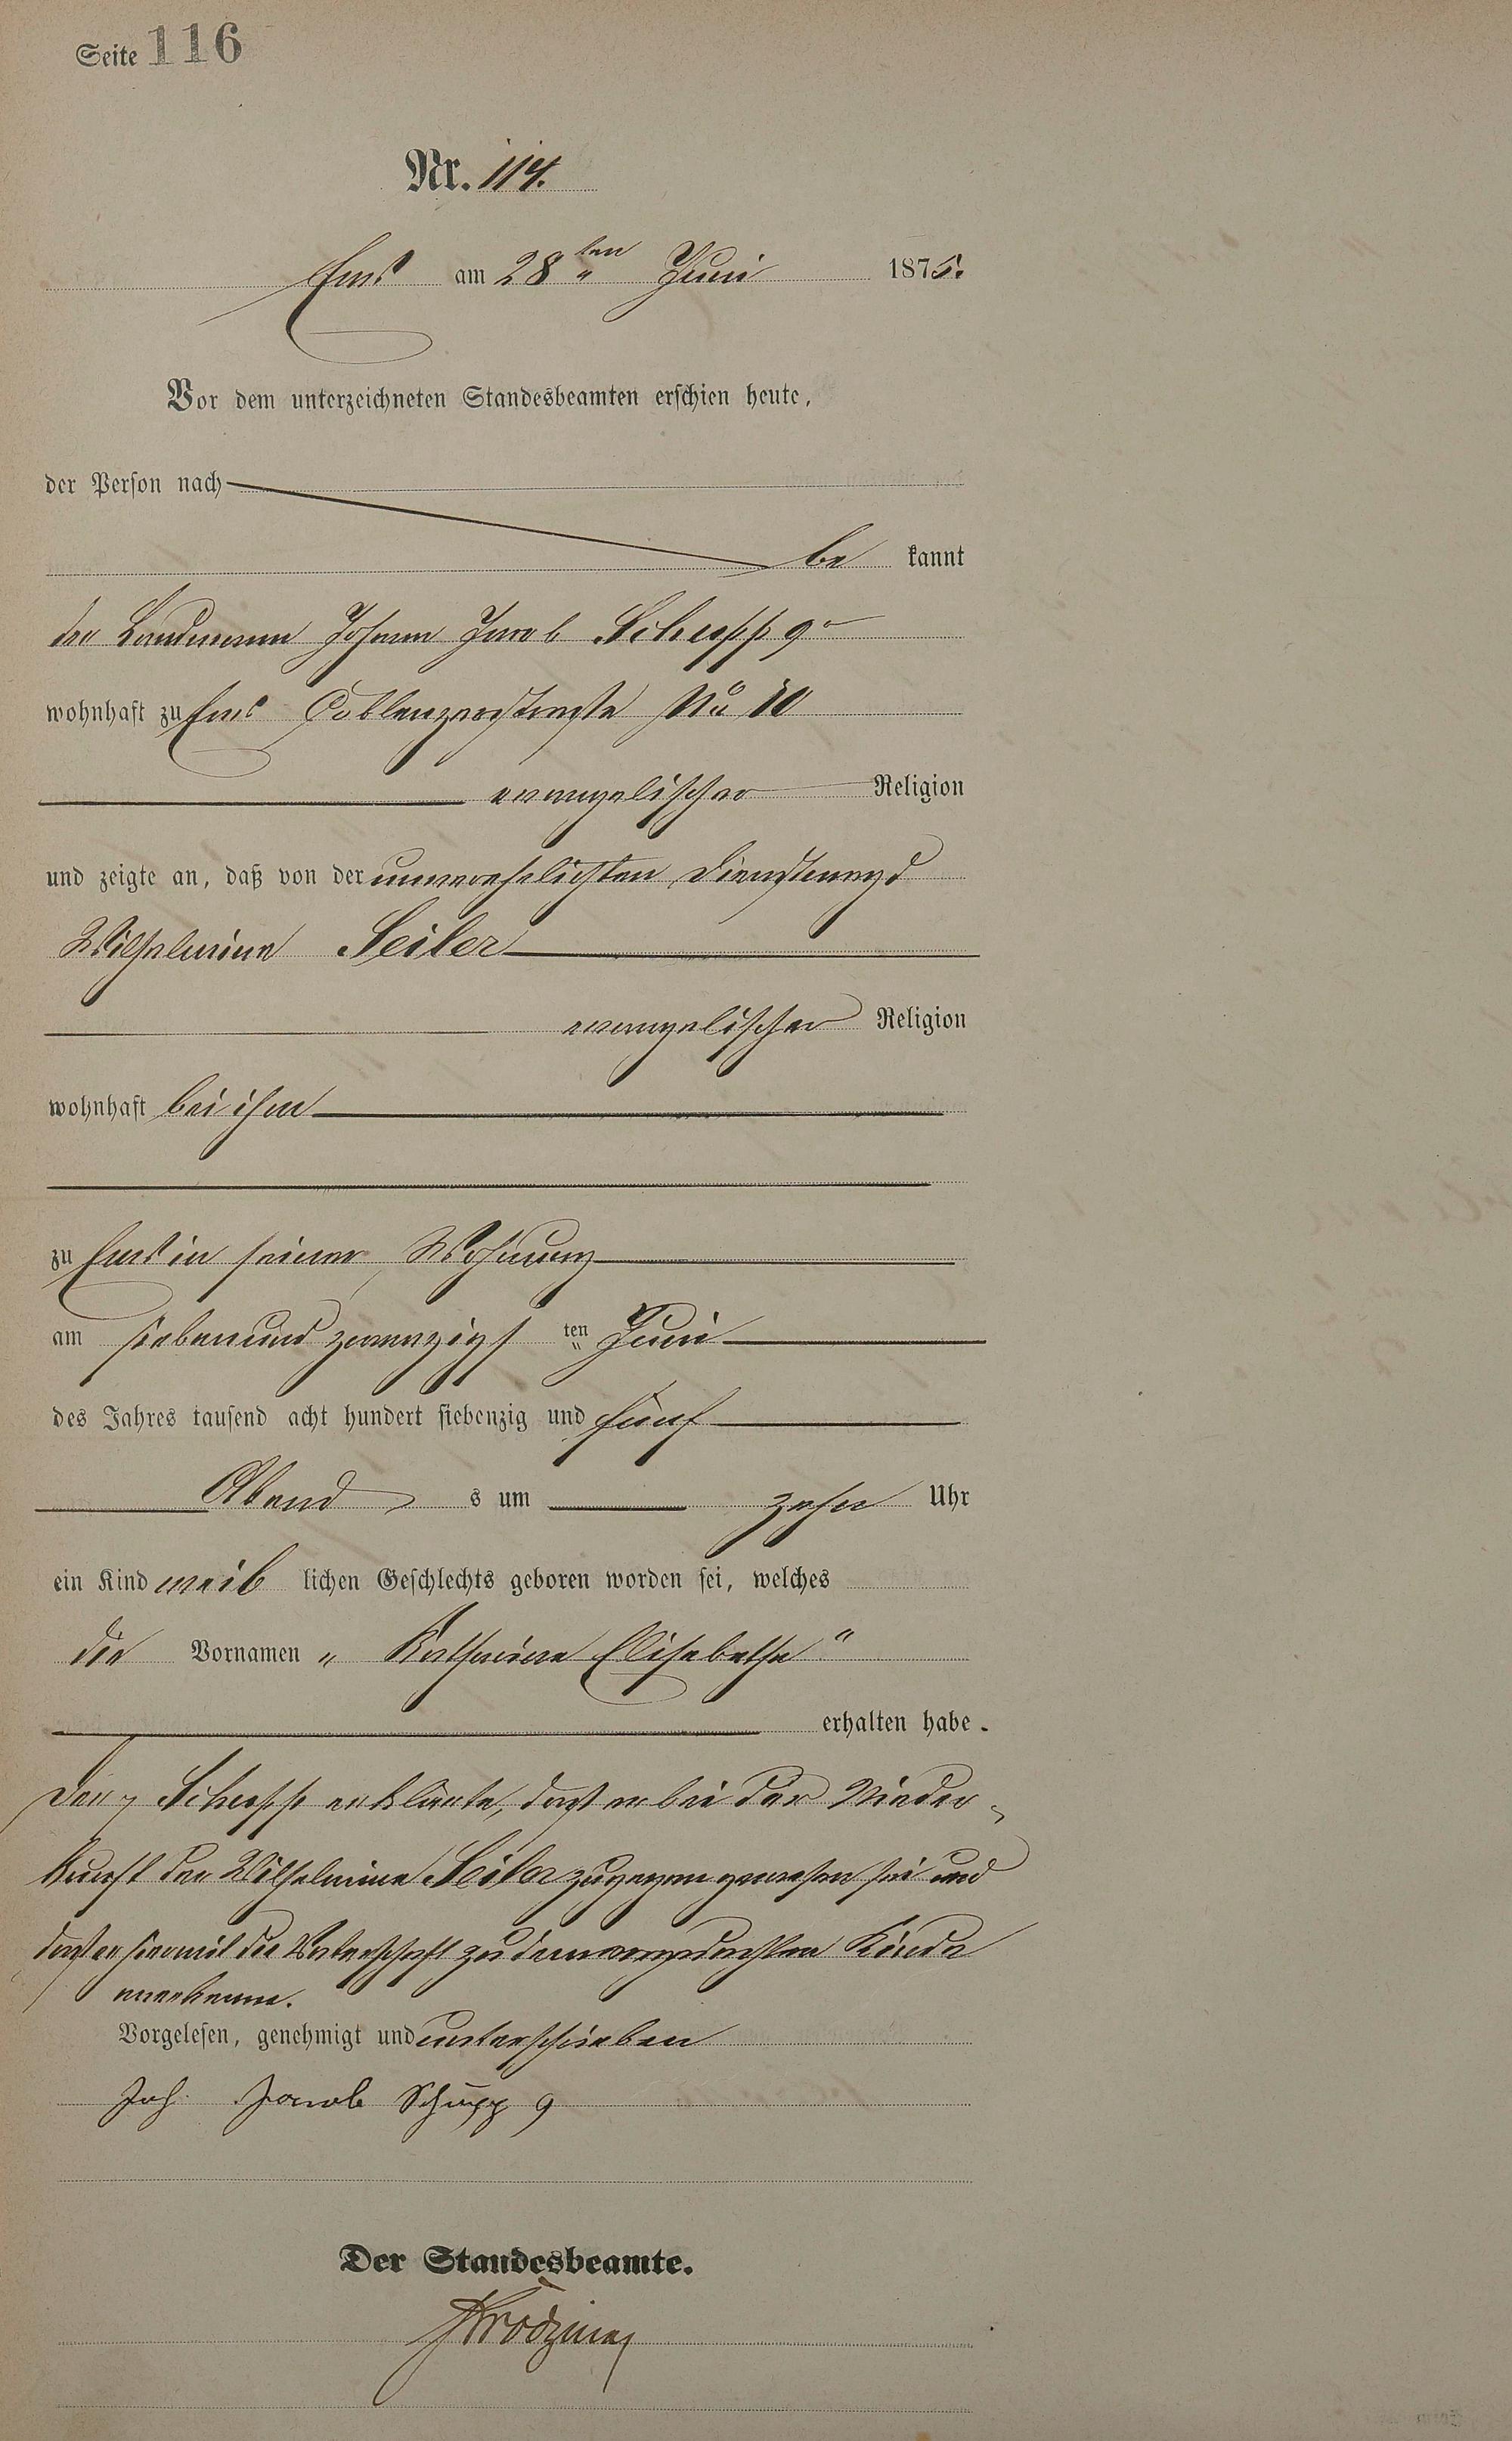 Seite 116
Nr. 114.
Ems am 28ten Juni 1875.
Vor dem unterzeichneten Standesbeamten erschien heute,
der Person nach
be kannt
der Landmann Johann Jacob Schupp 9r
wohnhaft zu Ems Coblenzerstraße No 10
evangelischer Religion
und zeigte an, daß von der unverehelichten Dienstmagd
Wilhelmine Seiler
evangelischer Religion
wohnhaft bei ihm
zu Ems in seiner Wohnung
am siebenundzwanzigs ten Juni
des Jahres tausend acht hundert siebenzig und fünf
Abend s um zehn Uhr
ein Kind weib lichen Geschlechts geboren worden sei, welches
die Vornamen „ Katharina Elisabetha "
erhalten habe.
Der Schupp erklärte, daß er bei der Nieder-
kunft der Wilhelmine Seiler zugegen gewesen sei und
daß er hiermit die Vaterschaft zu dem vorgedachten Kinde
anerkenne.
Vorgelesen, genehmigt und unterschrieben
Joh. Jacob Schupp 9
Der Standesbeamte.